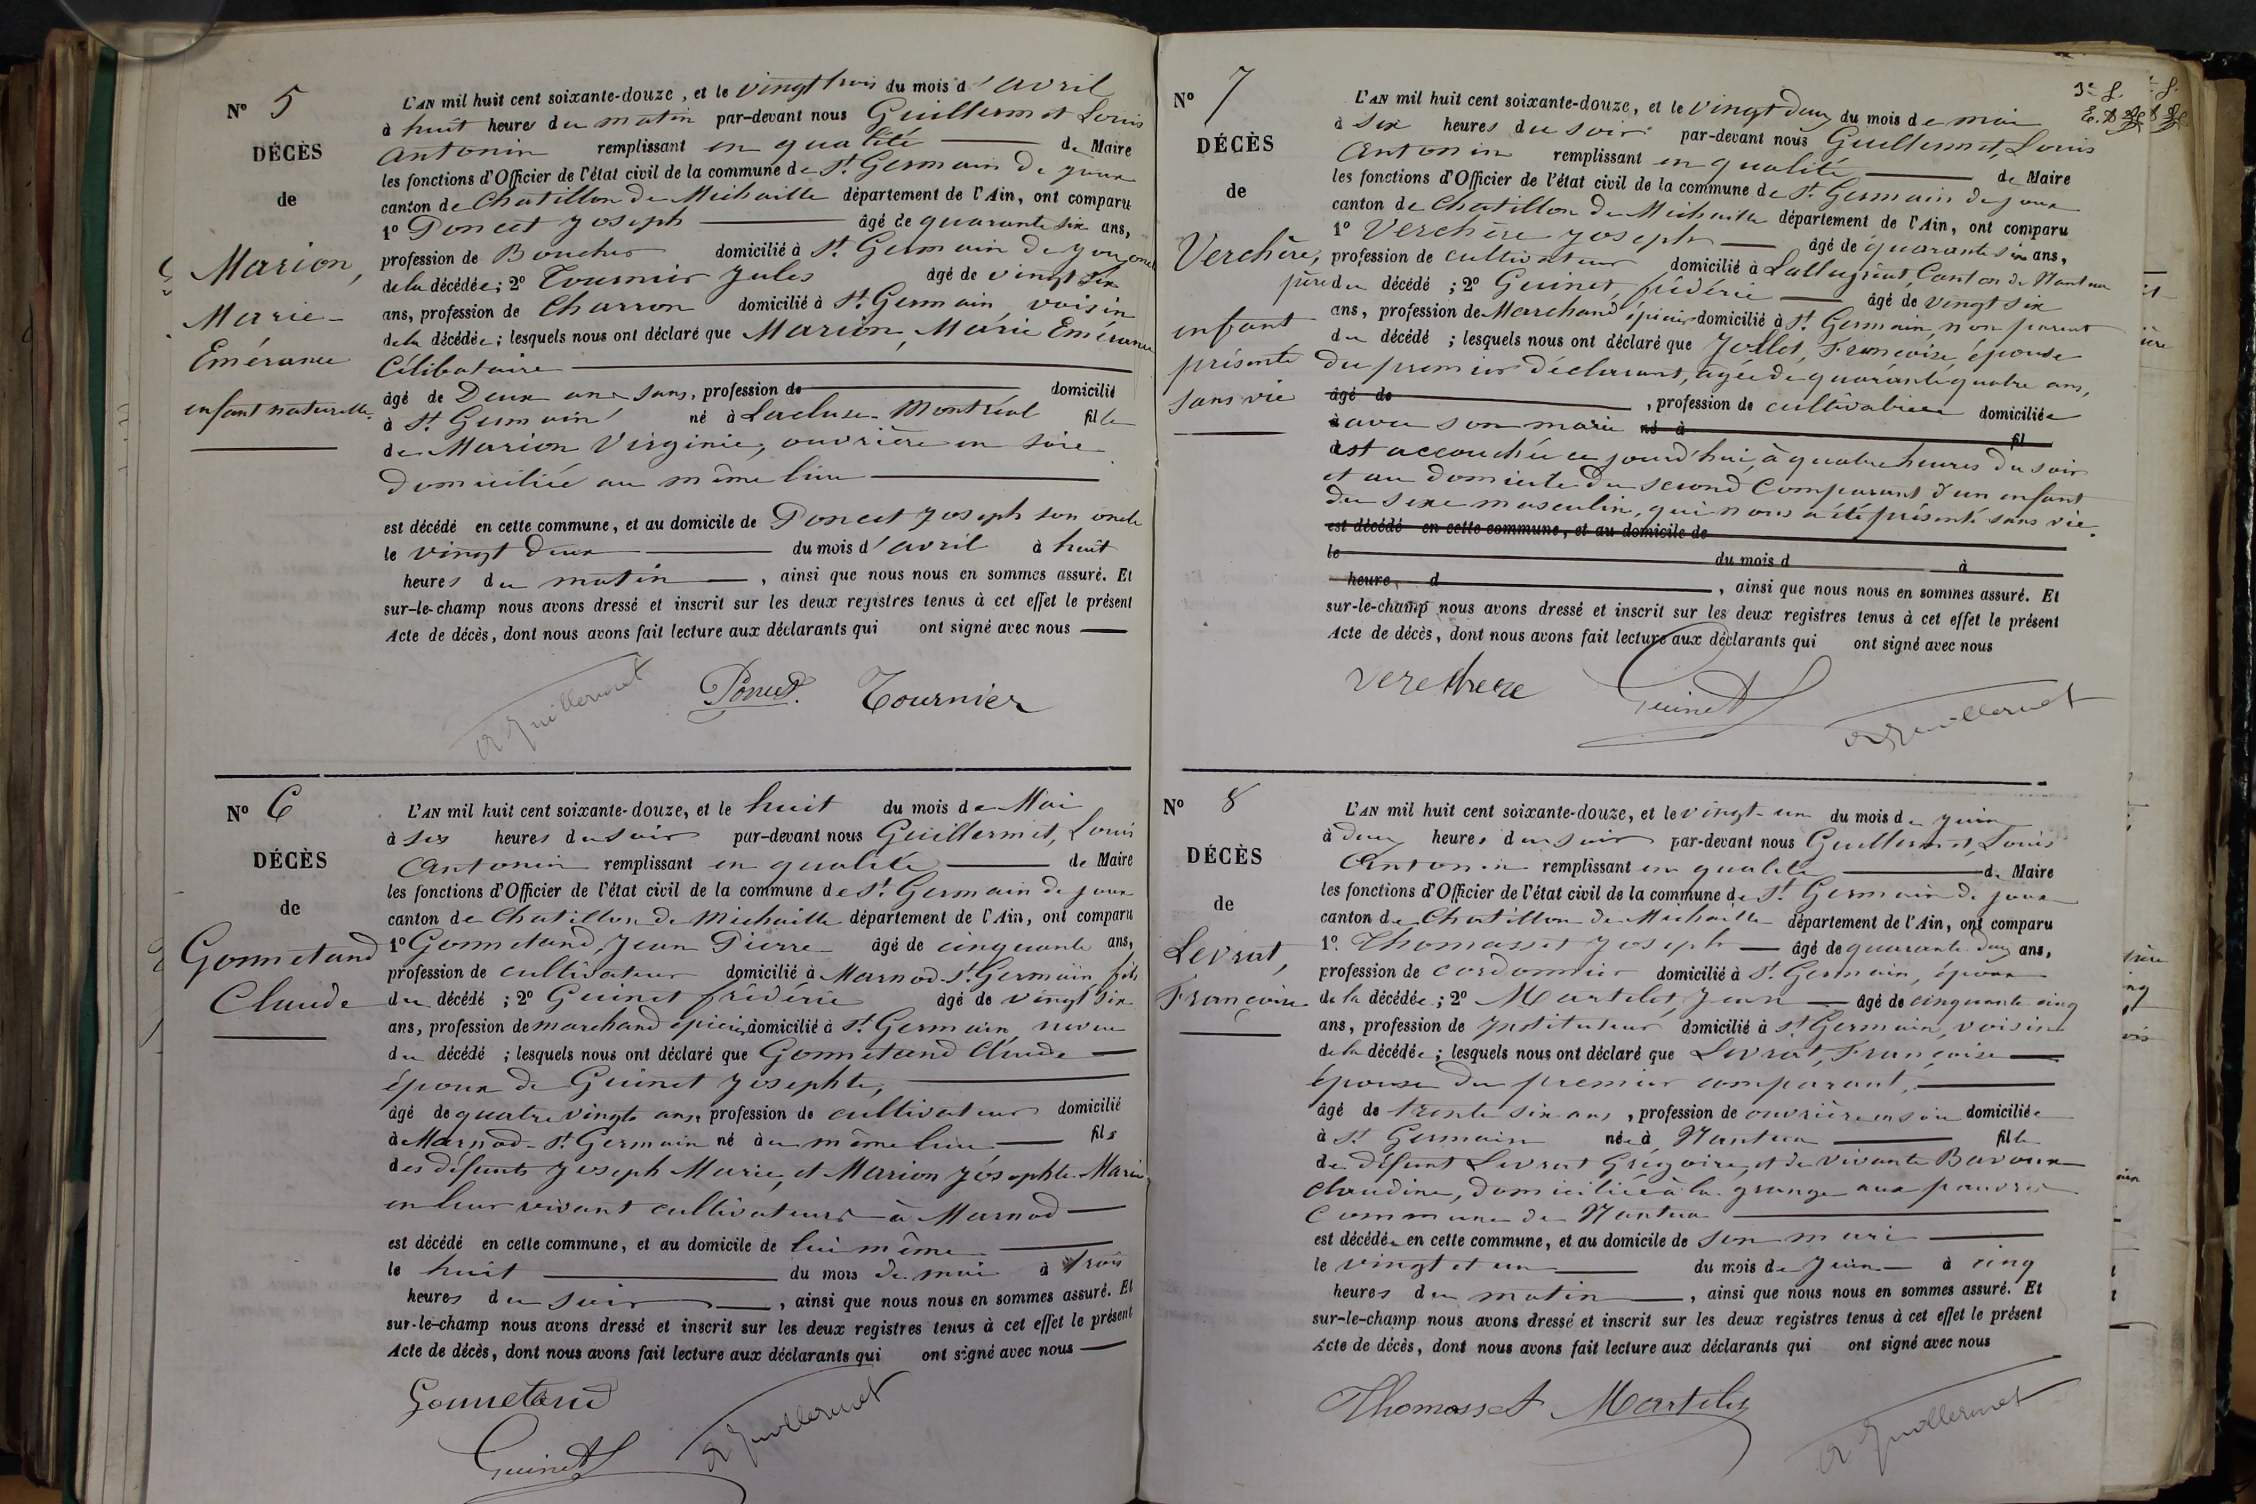 N° 5
DÉCÈS
de
Marion,
Marie
Emérance
enfant naturelle
L'AN mil huit cent soixante-douze, et le vingt trois du mois d'avril
à huit heures du matin par-devant nous Guillermet Louis
Antonin remplissant en qualité de Maire
les fonctions d'Officier de l'état civil de la commune de St. Germain de Joux
canton de Chatillon de Michaille département de l'Ain, ont comparu
1° Poncet Joseph âgé de quarante six ans,
profession de Boucher domicilié à St. Germain de Joux oncle
de la décédée; 2° Tournier Jules âgé de vingt six
ans, profession de Charron domicilié à St. Germain, voisin
de la décédée; lesquels nous ont déclaré que Marion, Marie Emérance
Célibataire
âgé de Deux ans, profession de domicilié
à St. Germain né à Lacluse-Montréal fille
de Marion Virginie, ouvrière en soie
domiciliée au même lieu
est décédé en cette commune, et au domicile de Poncet Joseph son oncle
le vingt deux du mois d'avril à huit
heures du matin, ainsi que nous nous en sommes assuré. Et
sur-le-champ nous avons dressé et inscrit sur les deux registres tenus à cet effet le présent
Acte de décès, dont nous avons fait lecture aux déclarants qui ont signé avec nous
A Guillermet Poncet Tournier
N° 6
DÉCÈS
de
Gonnetand
Claude
L'AN mil huit cent soixante-douze, et le huit du mois de Mai
à six heures du soir par-devant nous Guillermet, Louis
Antonin remplissant en qualité de Maire
les fonctions d'Officier de l'état civil de la commune de St. Germain de Joux
canton de Chatillon de Michaille département de l'Ain, ont comparu
1° Gonnetand, Jean Pierre âgé de cinquante ans,
profession de cultivateur domicilié à Marnod-St. Germain, fils
du décédé; 2° Guinet frédéric âgé de vingt six
ans, profession de marchand épicier, domicilié à St. Germain neveu
du décédé; lesquels nous ont déclaré que Gonnetand Claude
époux de Guinet Josephte,
âgé de quatre vingts ans, profession de cultivateur domicilié
à Marnod-St. Germain né à au même lieu fils
des défunts Joseph Marie, et Marion Joséphte-Marie,
en leur vivant cultivateurs à Marnod
est décédé en cette commune, et au domicile de lui même
le huit du mois de mai à trois
heures du soir, ainsi que nous nous en sommes assuré. Et
sur-le-champ nous avons dressé et inscrit sur les deux registres tenus à cet effet le présent
Acte de décès, dont nous avons fait lecture aux déclarants qui ont signé avec nous
Gonnetand
Guinet A Guillermet
3e f.
N° 7
DÉCÈS
de
Verchère,
enfant
présenté
sans vie
L'AN mil huit cent soixante-douze, et le vingt deux du mois de mai
à six heures du soir par-devant nous Guillermet, Louis
Antonin remplissant en qualité de Maire
les fonctions d'Officier de l'état civil de la commune de St. Germain de joux
canton de Chatillon de Michaille département de l'Ain, ont comparu
1° Verchère Joseph âgé de quarante six ans,
profession de cultivateur domicilié à Lalleyriat, Canton de Nantua
père du décédé; 2° Guinet, frédéric âgé de vingt six
ans, profession de Marchand épicier domicilié à St. Germain, non parent
du décédé; lesquels nous ont déclaré que Jollet, Françoise, épouse
du premier déclarant, agée de quarante quatre ans,
âgé de, profession de cultivatrice domiciliée
à avec son marie né à fil
est accouchée ce jourd'hui, à quatre heures du soir
et au domicile du second Comparant d'un enfant
du sexe masculin, qui nous a été présenté sans vie.
est décédé en cette commune, et au domicile de
le du mois d à
heure d, ainsi que nous nous en sommes assuré. Et
sur-le-champ nous avons dressé et inscrit sur les deux registres tenus à cet effet le présent
Acte de décès, dont nous avons fait lecture aux déclarants qui ont signé avec nous
Verchere Guinet A Guillermet
N° 8
DÉCÈS
de
Levrat,
Françoise
L'AN mil huit cent soixante-douze, et le vingt-un du mois de juin
à deux heures du soir par-devant nous Guillermet, Louis
Antonin remplissant en qualité de Maire
les fonctions d'Officier de l'état civil de la commune de St. Germain de joux
canton de Chatillon de Michaille département de l'Ain, ont comparu
1° Thomasset Joseph âgé de quarante deux ans,
profession de cordonnier domicilié à St. Germain, époux
de la décédée; 2° Martelet, Jean âgé de cinquante cinq
ans, profession de Instituteur domicilié à St. Germain, voisin
de la décédée; lesquels nous ont déclaré que Levrat, Françoise
épouse du premier comparant,
âgé de trente six ans, profession de ouvrière en soie domiciliée
à St. Germain née à Nantua fille
de défunt Levrat Grégoire, et de vivante Bavoux
Claudine, domiciliée à la grange aux pauvres
Commune de Nantua
est décédée en cette commune, et au domicile de son mari
le vingt et un du mois de Juin à cinq
heures du matin, ainsi que nous nous en sommes assuré. Et
sur-le-champ nous avons dressé et inscrit sur les deux registres tenus à cet effet le présent
Acte de décès, dont nous avons fait lecture aux déclarants qui ont signé avec nous
Thomasset Martelet A Guillermet